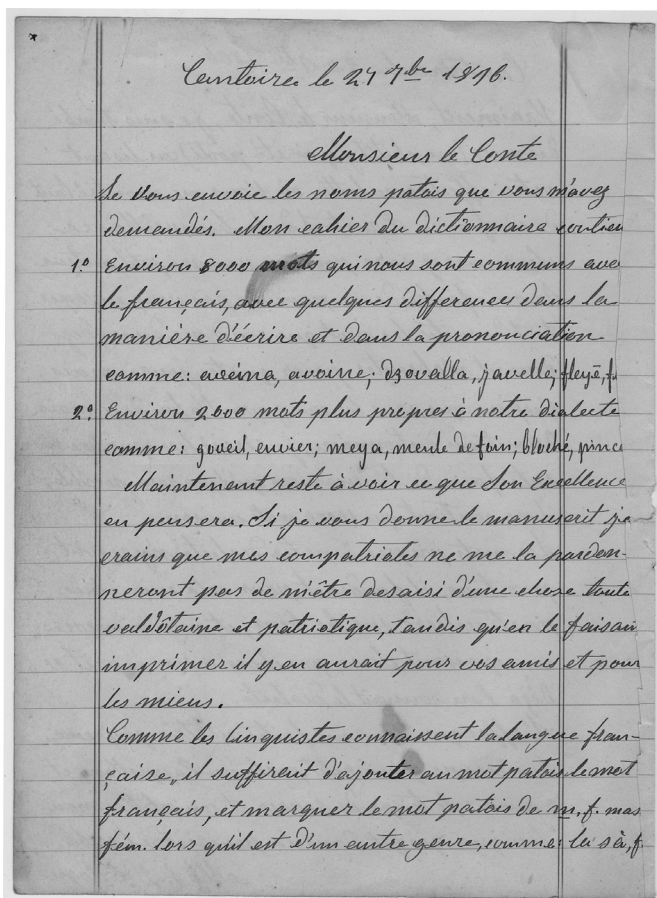 le 27 7bre 1916.
Monsieur le Conte
Je vous envoie les noms patois que vous m'avez
demandés. Mon cahier du dictionnaire contien
1.º Environ 8000 mots qui nous sont communs ave
le français, avec quelques differences dans la
maniére d'écrire et dans la prononciation
comme: aveina, avoine; dzovalla, javelle; fleyë, f
2.º Environ 2000 mots plus propres à notre dialecte
comme: goveil, envier; meya, meule de foin; bloché, pince
Maintenant reste à voir ce que Son Excellence
en pensera. Si je vous donne le manuscrit je
crains que mes compatriotes ne me la pardon-
neront pas de m'être desaisi d'une chose toute
valdôtaine et patriotique, tandis qu'en le faisan
imprimer il y en aurait pour vos amis et pour
les miens.
Comme les linguistes connaissent la langue fran-
çaise, il suffirait d'ajouter au mot patois le mot
français, et marquer le mot patois de m, f. mas
fém. lors qu'il est d'un autre genre, comme: la sà, f.